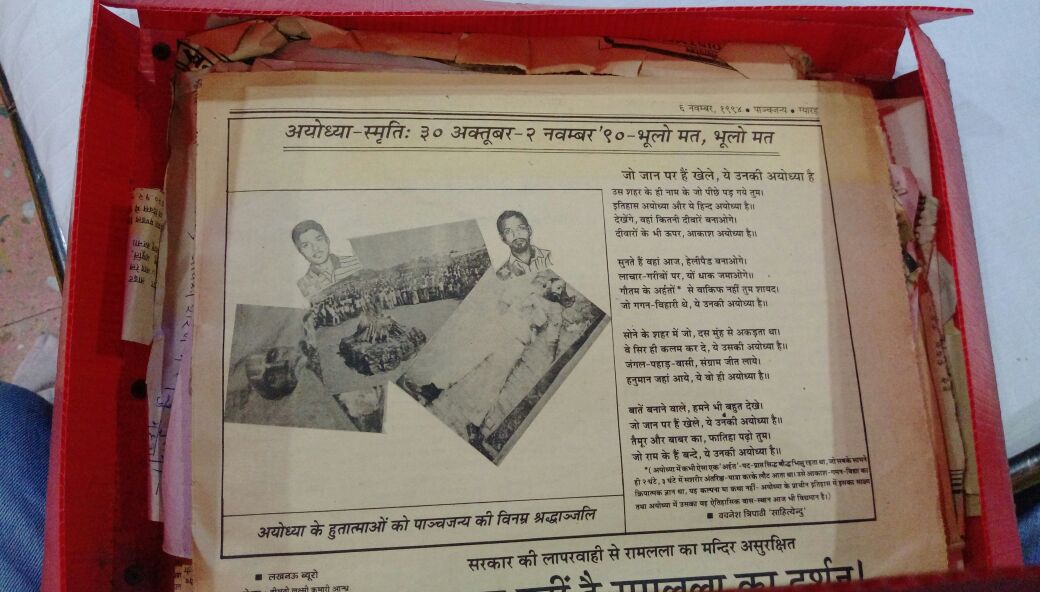 ६ नवम्बर, १९९४ ● पाञ्चजन्य ● ग्यारह
अयोध्या-स्मृतिः ३० अक्तूबर-२ नवम्बर '९०-भूलो मत, भूलो मत
जो जान पर हैं खेले, ये उनकी अयोध्या है
उस शहर के ही नाम के जो पीछे पड़ गये तुम।
इतिहास अयोध्या और ये हिन्द अयोध्या है॥
देखेंगे, वहां कितनी दीवारें बनाओगे।
दीवारों के भी ऊपर, आकाश अयोध्या है॥
सुनते हैं वहां आज, हेलीपैड बनाओगे।
लाचार-गरीबों पर, यों धाक जमाओगे॥
गौतम के अर्हतों* से वाकिफ नहीं तुम शायद।
जो गगन-विहारी थे, ये उनकी अयोध्या है॥
सोने के शहर में जो, दस मुंह से अकड़ता था।
वे सिर ही कलम कर दे, ये उसकी अयोध्या है॥
जंगल-पहाड़-वासी, संग्राम जीत लाये।
हनुमान जहां आये, ये वो ही अयोध्या है॥
बातें बनाने वाले, हमने भी बहुत देखे।
जो जान पर हैं खेले, ये उनकी अयोध्या है॥
तैमूर और बाबर का, फातिहा पढ़ो तुम।
जो राम के हैं बन्दे, ये उनकी अयोध्या है॥
*(अयोध्या में कभी ऐसा एक 'अर्हत'-पद-प्राप्त सिद्ध बौद्ध भिक्षु रहता था, जो सबके सामने
ही २ घंटे, ३ घंटे में सशरीर अंतरिक्ष-यात्रा करके लौट आता था। उसे आकाश-गमन-विद्या का
क्रियात्मक ज्ञान था, यह कल्पना या कथा नहीं- अयोध्या के प्राचीन इतिहास में इसका साक्ष्य
तथा अयोध्या में उसका यह ऐतिहासिक वास-स्थान आज भी विद्यमान है।)
■ वचनेश त्रिपाठी 'साहित्येन्दु'
अयोध्या के हुतात्माओं को पाञ्चजन्य की विनम्र श्रद्धाञ्जलि
सरकार की लापरवाही से रामलला का मन्दिर असुरक्षित
■ लखनऊ ब्यूरो